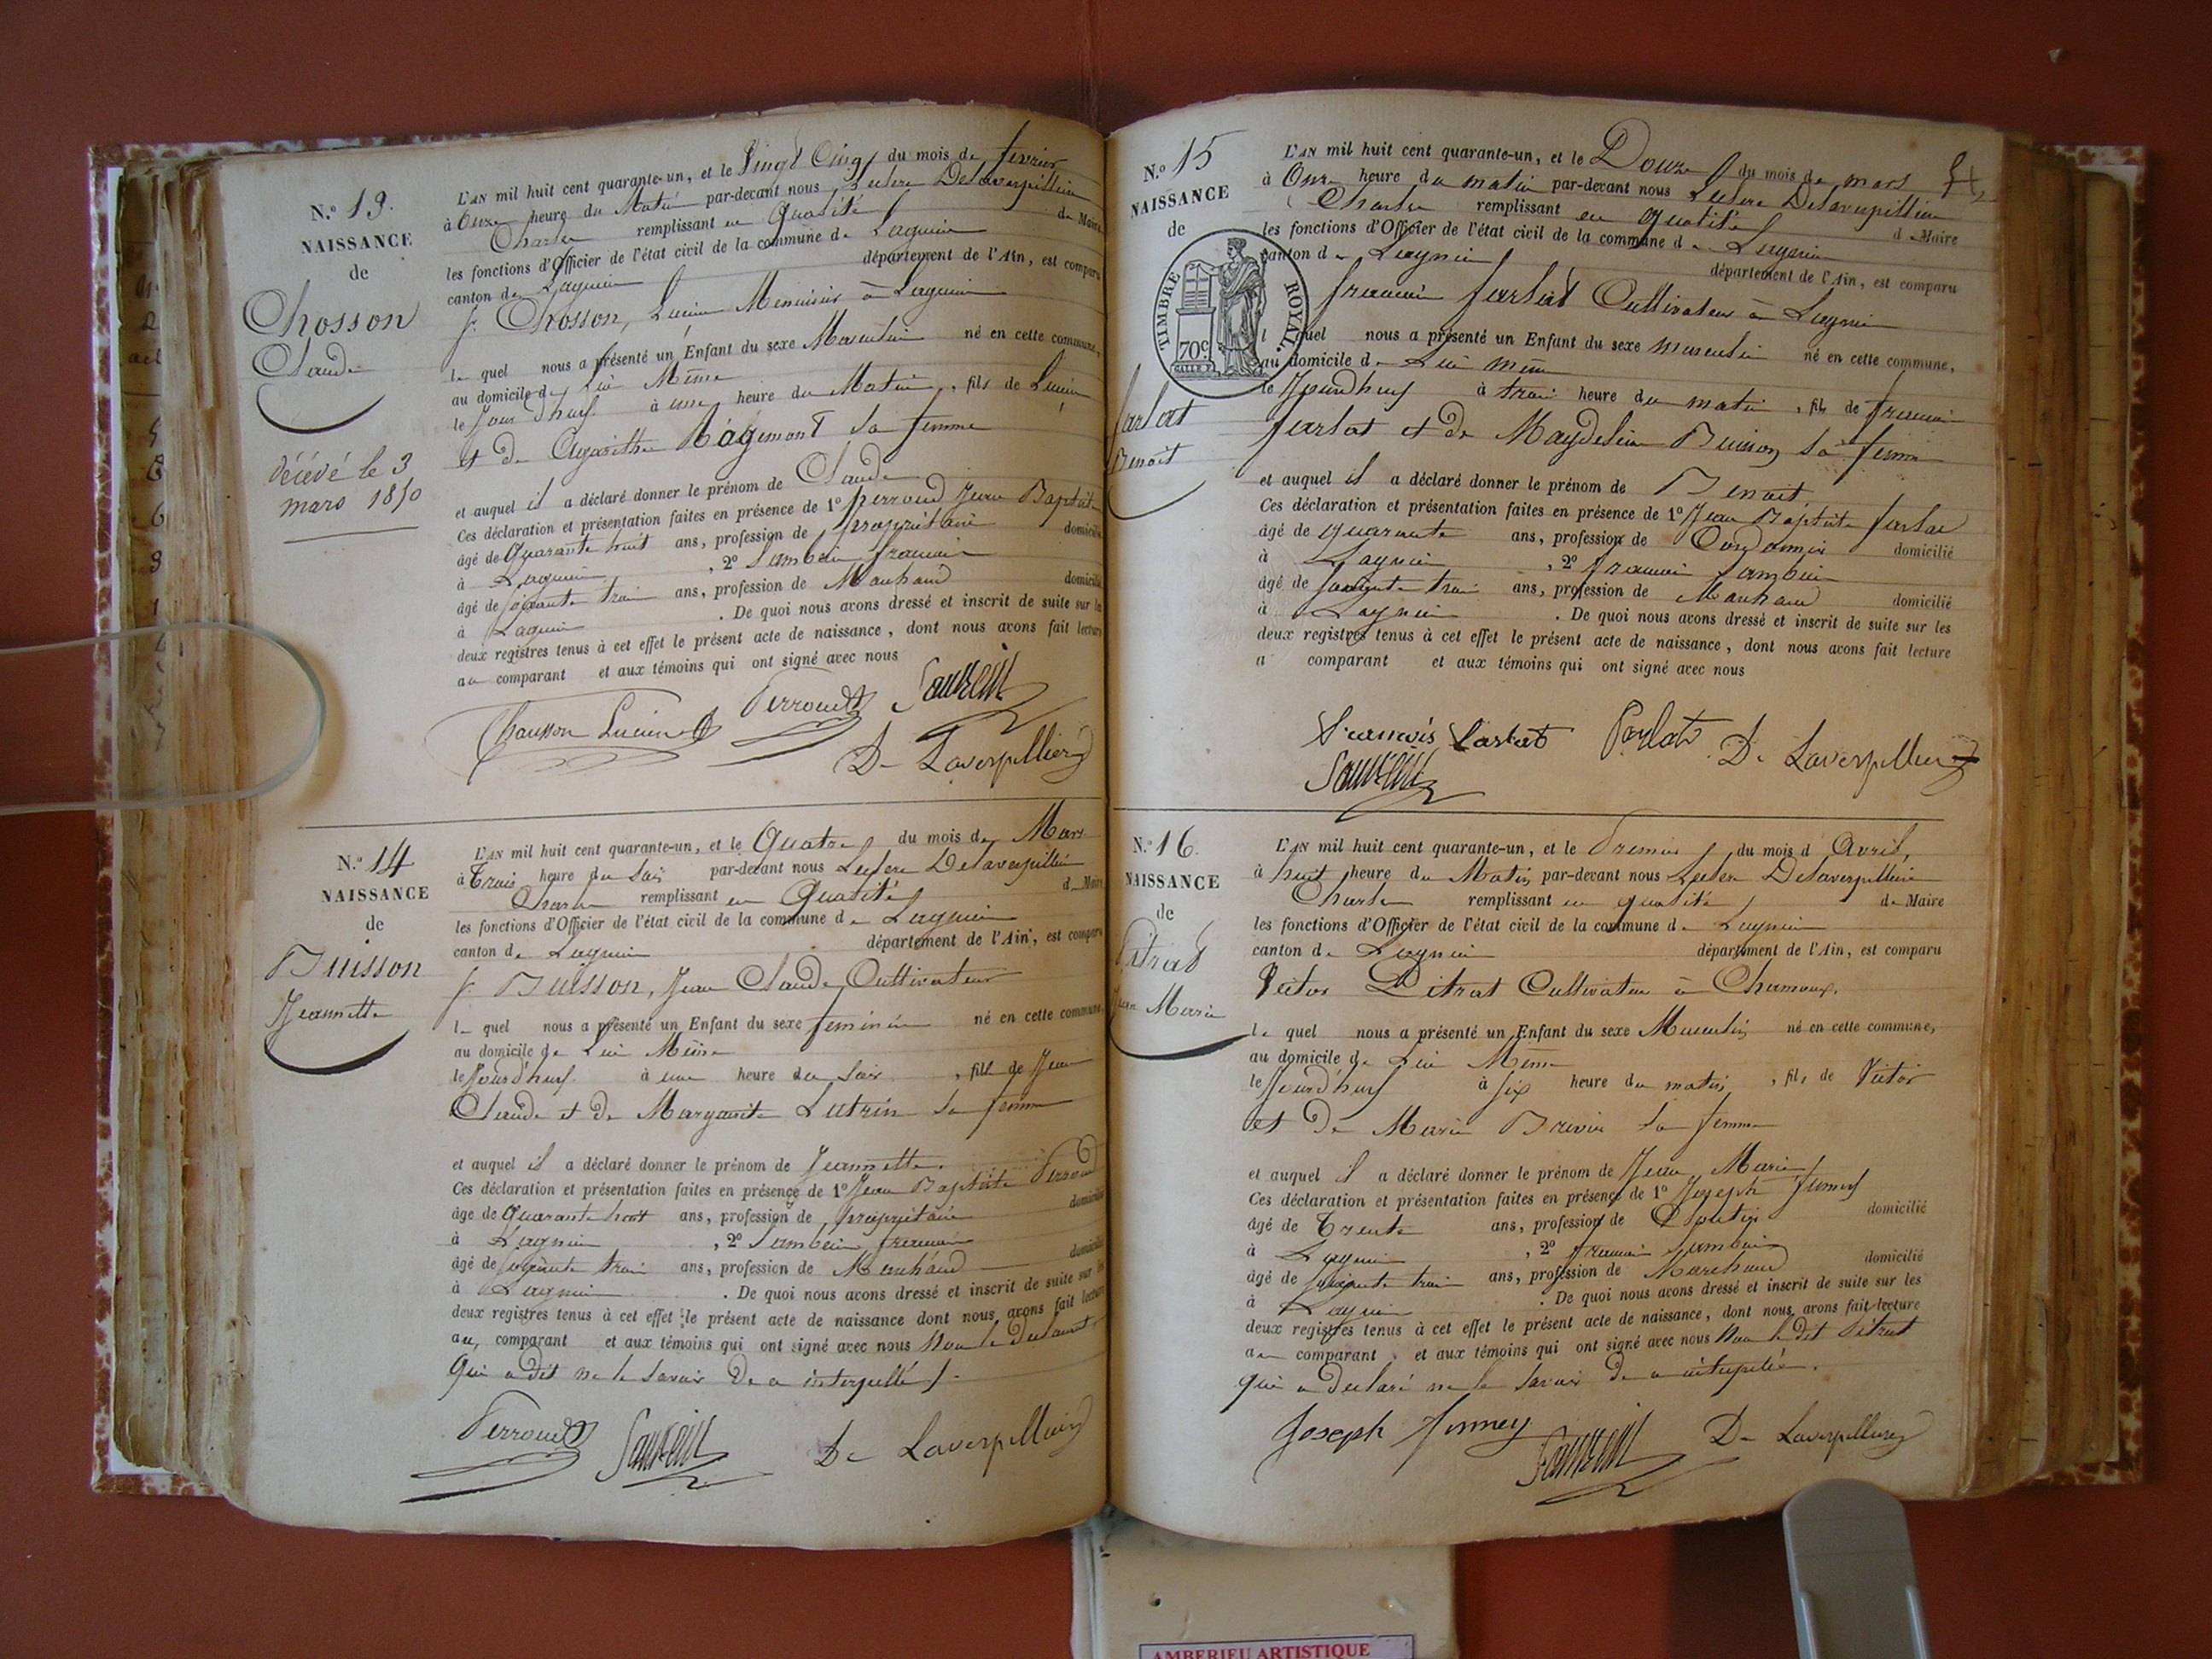 N.o 13.
NAISSANCE
de
Chosson
Claude
décédé le 3
mars 1850
L'AN mil huit cent quarante-un, et le Vingt Cinq du mois de février
à Onze heure du Matin par-devant nous Leclerc Delaverpillière
Charles remplissant en Qualité de Maire
les fonctions d'Officier de l'état civil de la commune de Lagnieu
canton de Lagnieu département de l'Ain, est comparu
Chosson, Lucien Menuisier à Lagnieu
le quel nous a présenté un Enfant du sexe Masculin né en cette commune,
au domicile de Lui Même
le Jour d'huy à une heure du Matin, fils de Lucien
et de Agarithe Ragemont sa femme
et auquel il a déclaré donner le prénom de Claude
Ces déclaration et présentation faites en présence de 1o perroud Jean Baptiste
âgé de Quarante huit ans, profession de propriétaire domicilié
à Lagnieu, 2o Sambein francois
âgé de soixante trois ans, profession de Marchand domicilié
à Lagnieu. De quoi nous avons dressé et inscrit de suite sur les
deux registres tenus à cet effet le présent acte de naissance, dont nous avons fait lecture
au comparant et aux témoins qui ont signé avec nous
Chausson Lucien Perroud
De Laverpilliere
N.o 14
NAISSANCE
de
Buisson
Jeannette
L'AN mil huit cent quarante-un, et le Quatre du mois de Mars
à Trois heure du Soir par-devant nous Leclerc Delaverpillière
Charles remplissant en Qualité de Maire
les fonctions d'Officier de l'état civil de la commune de Lagnieu
canton de Lagnieu département de l'Ain, est comparu
Buisson, Jean Claude, Cultivateur
le quel nous a présenté un Enfant du sexe feminin né en cette commune,
au domicile de Lui Même
le Jourd'huy à une heure du Soir, fille de Jean
Claude et de Marguerite Lutrin sa femme
et auquel il a déclaré donner le prénom de Jeannette.
Ces déclaration et présentation faites en présence de 1o Jean Baptiste Perroud
âgé de Quarante huit ans, profession de propriétaire domicilié
à Lagnieu, 2o Sambein francois
âgé de soixante trois ans, profession de Marchand domicilié
à Lagnieu. De quoi nous avons dressé et inscrit de suite sur les
deux registres tenus à cet effet le présent acte de naissance dont nous avons fait lecture
au, comparant et aux témoins qui ont signé avec nous Non le Declarant
qui a dit ne le savoir De ce interpellé
Perroud De Laverpilliere
N.o 15
NAISSANCE
de
TIMBRE ROYAL
70c.
farlat
Benoit
L'AN mil huit cent quarante-un, et le Douze du mois de mars
à Onze heure du matin par-devant nous Leclerc Delaverpillière
Charles remplissant en qualité de Maire
les fonctions d'Officier de l'état civil de la commune de Lagnieu
canton de Lagnieu département de l'Ain, est comparu
francois farlat Cultivateur à Lagnieu
lequel nous a présenté un Enfant du sexe masculin né en cette commune,
au domicile de Lui même
le Jourdhuy à trois heure du matin, fils de francois
farlat et de Magdeleine Buisson sa femme
et auquel il a déclaré donner le prénom de Benoit
Ces déclaration et présentation faites en présence de 1o Jean Baptiste farlat
âgé de quarante ans, profession de Cordonnier domicilié
à Lagnieu, 2o francois Sambein
âgé de soixante trois ans, profession de Marchand domicilié
à Lagnieu. De quoi nous avons dressé et inscrit de suite sur les
deux registres tenus à cet effet le présent acte de naissance, dont nous avons fait lecture
a comparant et aux témoins qui ont signé avec nous
De Laverpilliere
N.o 16.
NAISSANCE
de
Pitrat
Jean Marie
L'AN mil huit cent quarante-un, et le Premier du mois d Avril,
à huit heure du Matin par-devant nous Leclerc Delaverpillière
Charles remplissant en qualité de Maire
les fonctions d'Officier de l'état civil de la commune de Lagnieu
canton de Lagnieu département de l'Ain, est comparu
Victor Pitrat Cultivateur à Chamoux.
le quel nous a présenté un Enfant du sexe Masculin né en cette commune,
au domicile de Lui Même
le Jourd'huy à six heure du matin, fils de Victor
et de Marie Brivin sa femme
et auquel il a déclaré donner le prénom de Jean Marie
Ces déclaration et présentation faites en présence de 1o Joseph
âgé de Trente ans, profession de domicilié
à Lagnieu, 2o francois Sambein
âgé de soixante trois ans, profession de Marchand domicilié
à Lagnieu. De quoi nous avons dressé et inscrit de suite sur les
deux registres tenus à cet effet le présent acte de naissance, dont nous avons fait lecture
au comparant et aux témoins qui ont signé avec nous Non le dit Pitrat
qui a declaré ne le savoir De ce interpellé.
Joseph De Laverpilliere
AMBERIEU ARTISTIQUE